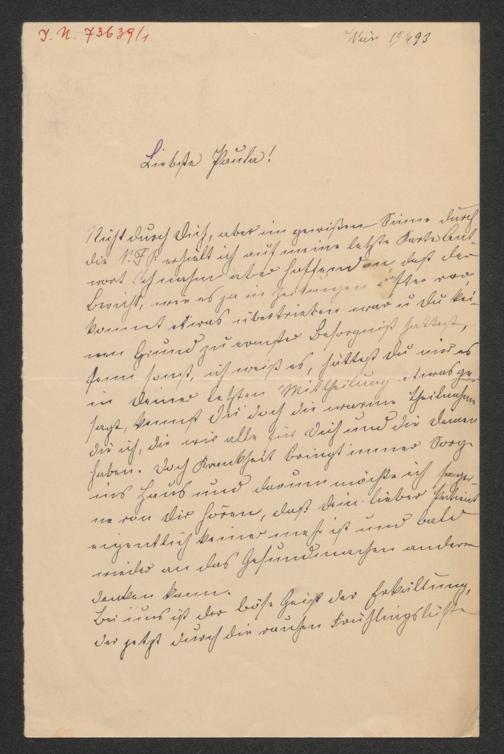 J. N. 73639/1
Liebste Paula!
Nicht durch Dich, aber im gewissen Sinne durch
die N.F.P. erhielt ich auf meine letzte Karte Ant-
wort. Ich nahm aber hoffend an daß der
Bericht, wie es ja in Zeitungen öfter vor-
kommt etwas übertrieben war u Du kei-
nen Grund zu ernster Besorgniß hattest,
denn sonst, ich weiß es, hättest Du mir es
in Deiner letzten Mittheilung etwas ge-
sagt, kennst Du doch die warme Theilnahme
die ich, die wir alle für Dich und die Deinen
haben. Doch Krankheit bringt immer Sorge
ins Haus und darum möchte ich
ne von Dir hören, daß Dein lieber Patient
eigentlich keiner mehr ist und bald
wieder an das Gesundmachen anderer
denken kann.
Bei uns ist der böse Geist der Erkältung,
der jetzt durch die rauhen Frühlingslüfte